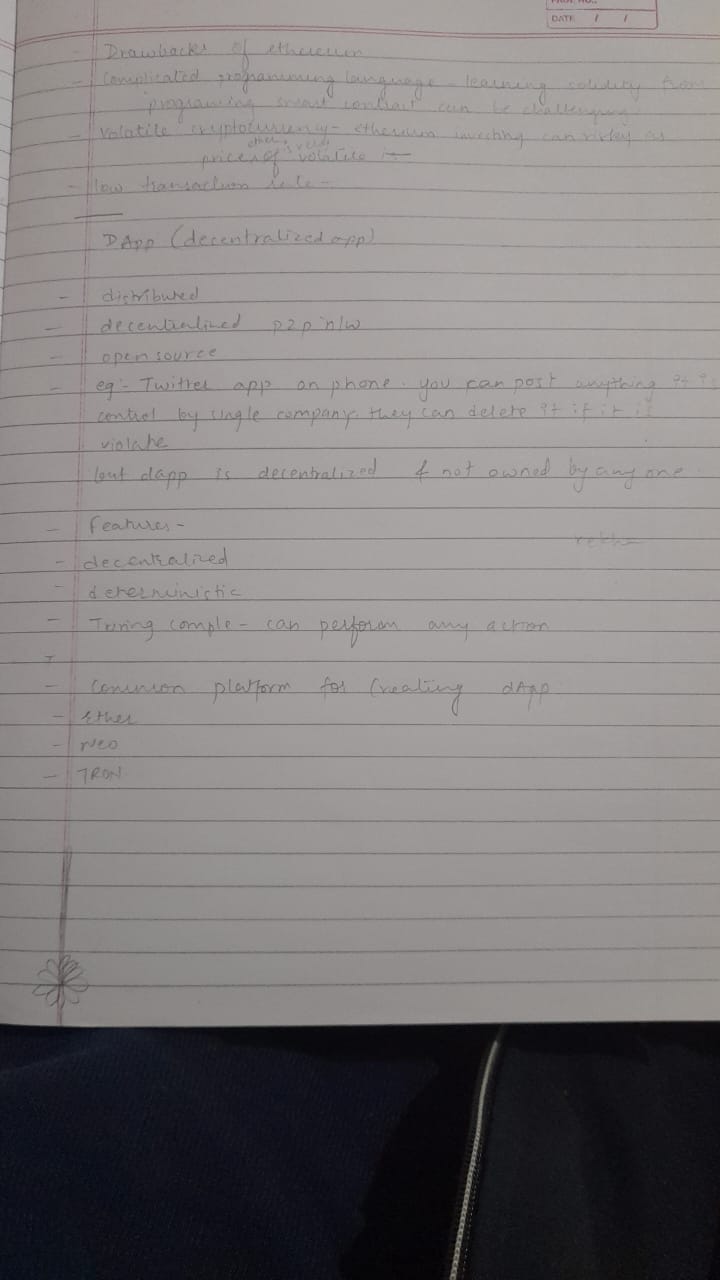 PAGE NO.:
DATE / /
Drawbacks of ethereum
- Complicated programming language - learning solidity from
programing smart contract can be challenging
- Volatile cryptocurrency - ethereum investing can risky as
ether is very
price of volatile is
- low transaction rate -
DApp (decentralized app)
- distributed
- decentralized p2p n/w
- open source
- eg:- Twitter app on phone. you can post anything it is
control by single company. they can delete it if it is
violate
but dapp is decentralized & not owned by any one
- Features -
- decentralized
- deterministic
- Turing comple - can perform any action
- Common platform for Creating dApp
- Ether
- NEO
- TRON